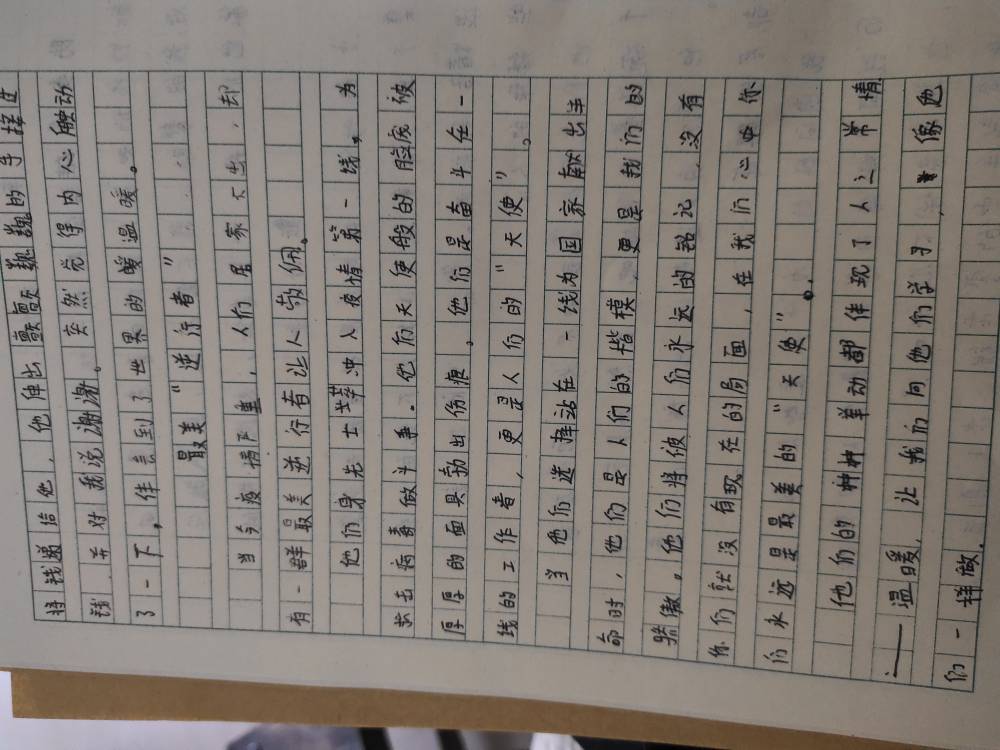 将钱递给他，他伸出颤颤巍巍的手接过
钱，并对我说谢谢。突然觉得内心触动
了一下，体会到了世界的暖暖温暖。
最美“逆行者”
当今疫情严重，人们居家不出，却
有一群最美逆行者让人敬佩。
他们身先士卒冲入疫情第一线，为
抗击病毒做斗争。他们天使般的脸庞被
厚厚的面具勒出伤痕。他们是奋斗在一
线的工作者，更是人们的“天使”。
当他们选择站在一线为国家献出生
命时，他们是人们的楷模，更是我们的
骄傲。他们将被人们永远的铭记，没有
你们就没有现在的局面，在我们心中你
们永远是最美的“天使”。
他们的种种举动都体现了人之常情
——温暖，让我们向他们学习，像他
们一样做。